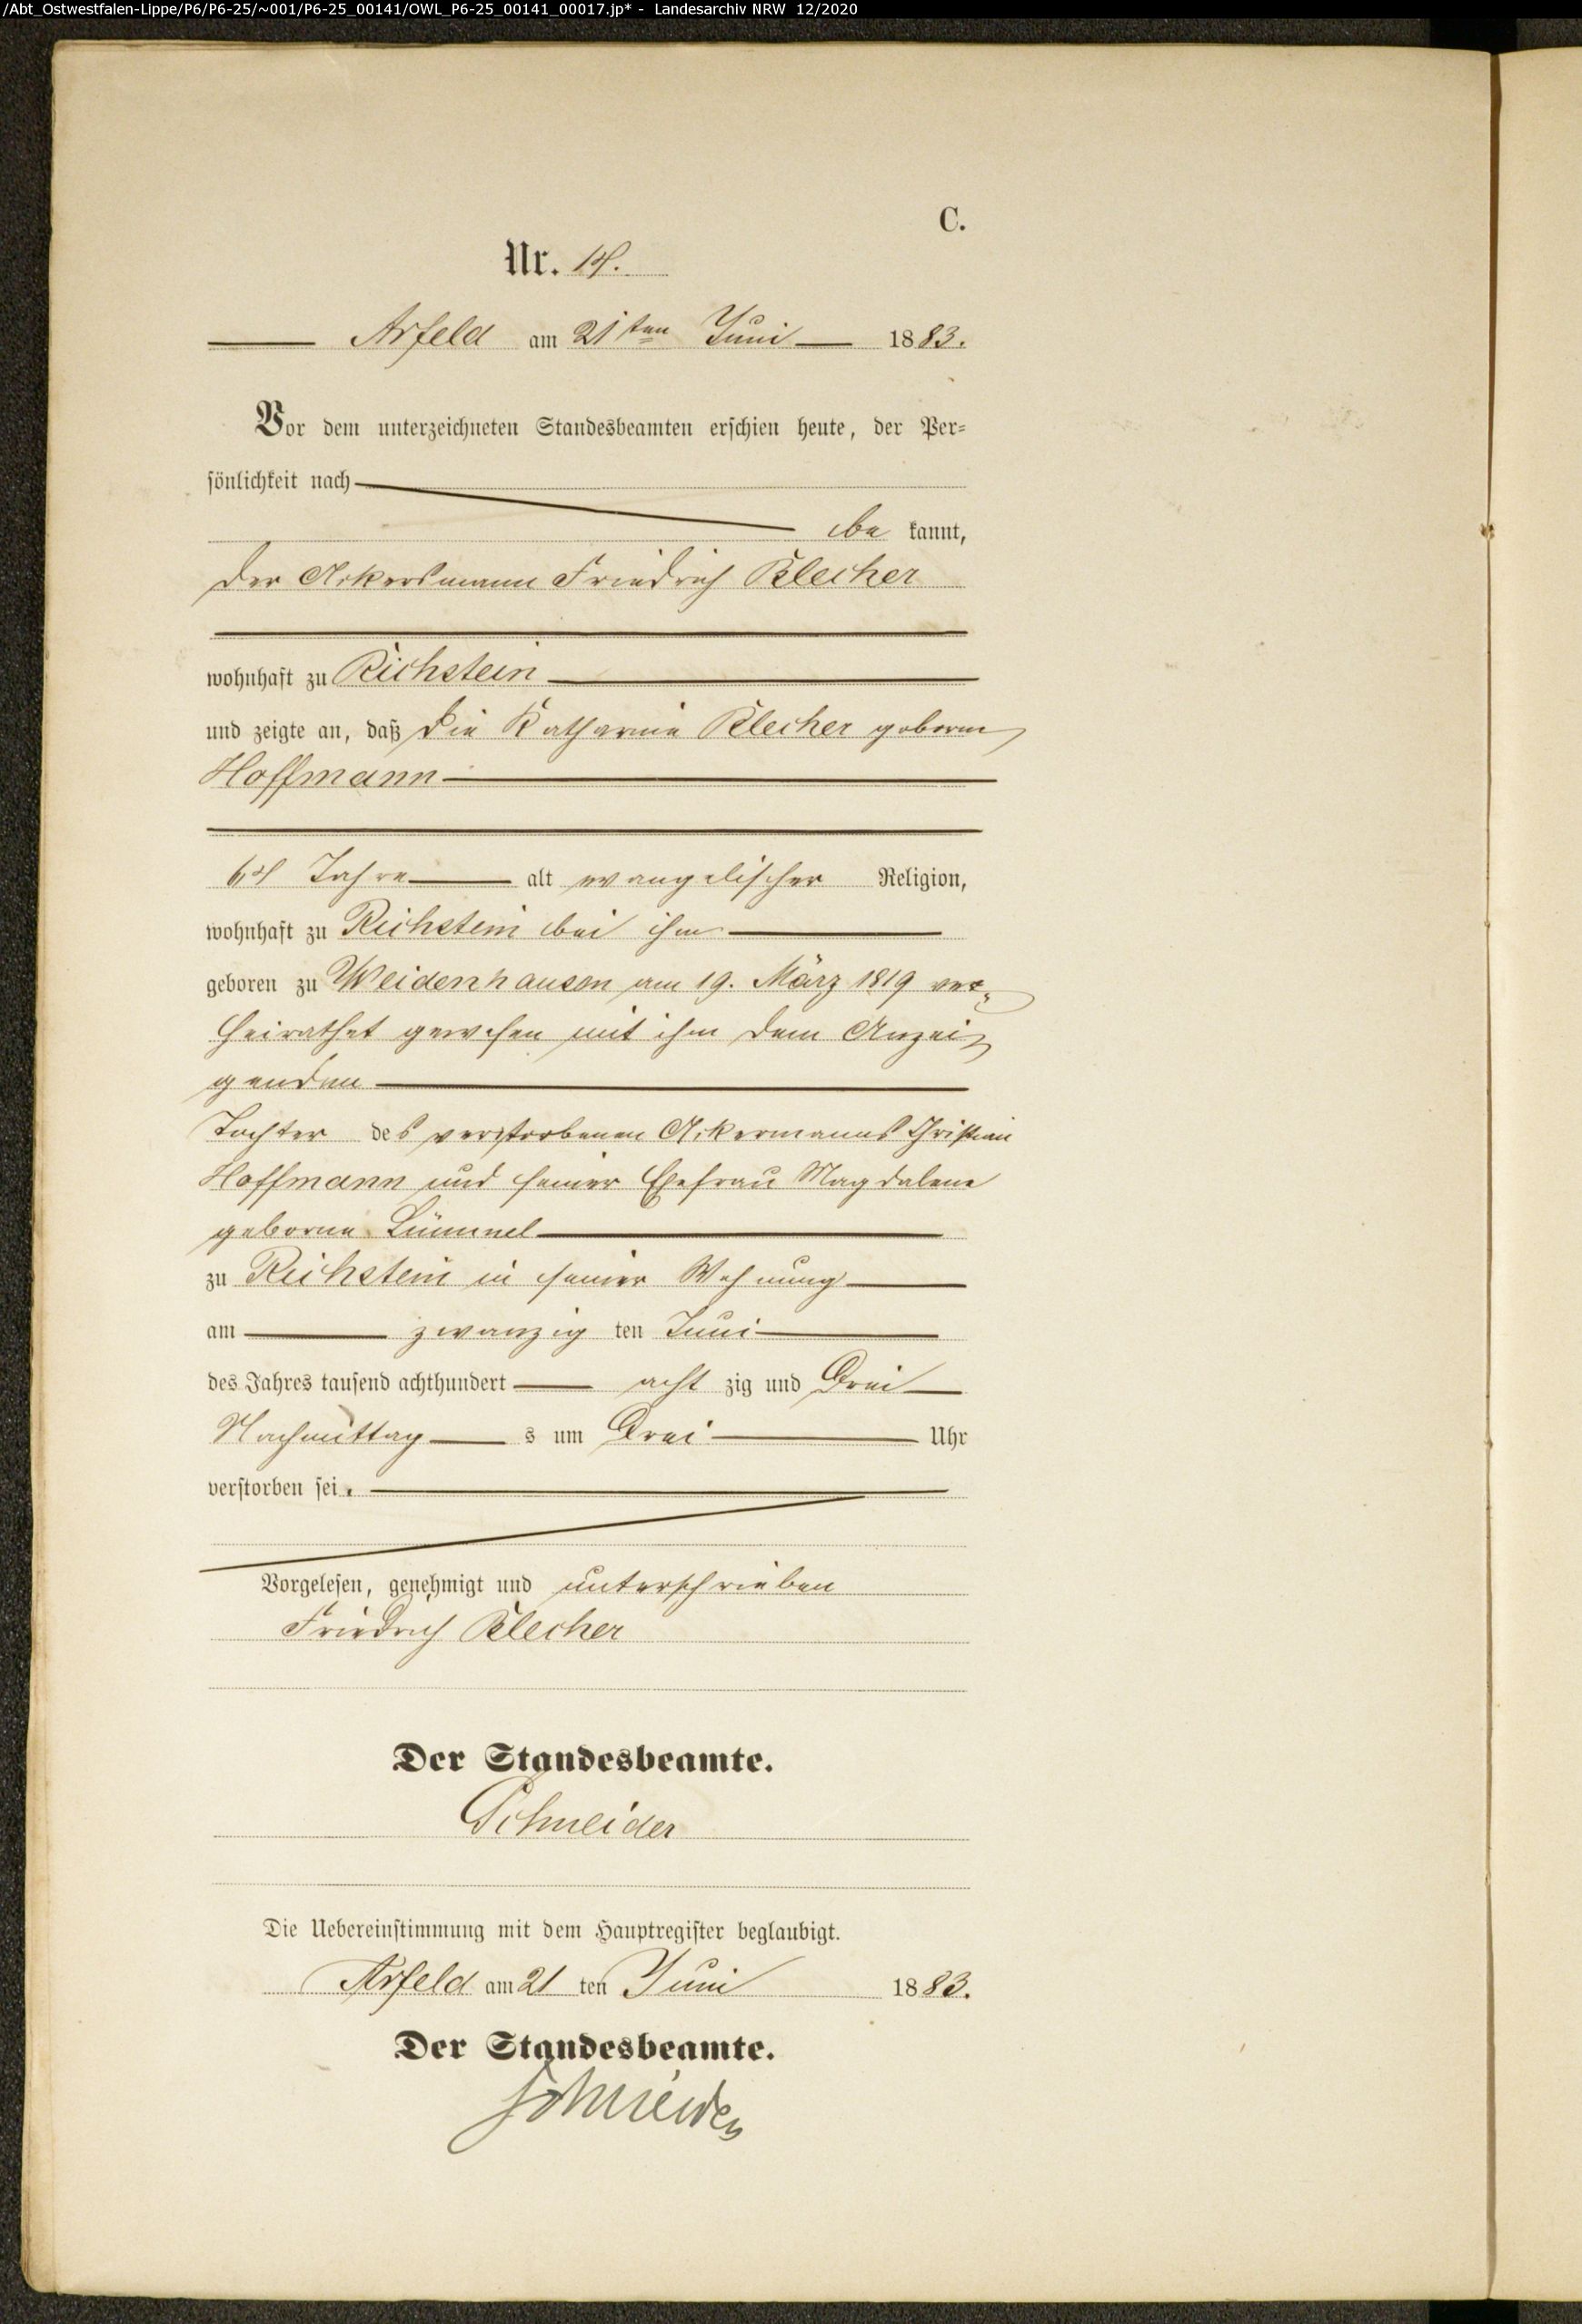 /Abt_Ostwestfalen-Lippe/P6/P6-25/~001/P6-25_00141/OWL_P6-25_00141_00017.jp* - Landesarchiv NRW 12/2020
C.
Nr. 14.
Arfeld am 21ten Juni 1883.
Vor dem unterzeichneten Standesbeamten erschien heute, der Per-
sönlichkeit nach
be kannt,
der Ackersmann Friedrich Blecher
wohnhaft zu Richstein
und zeigte an, daß die Katharine Blecher geborne
Hoffmann
64 Jahre alt evangelischer Religion,
wohnhaft zu Richstein bei ihm
geboren zu Weidenhausen am 19. März 1819 ver-
heirathet gewesen mit ihm dem Anzei-
genden
Tochter des verstorbenen Ackermanns Christian
Hoffmann und seiner Ehefrau Magdalene
geborne Lümmel
zu Richstein in seiner Wohnung
am zwanzig ten Juni
des Jahres tausend achthundert acht zig und Drei
Nachmittag s um Drei Uhr
verstorben sei.
Vorgelesen, genehmigt und unterschrieben
Friedrich Blecher
Der Standesbeamte.
Schneider
Die Uebereinstimmung mit dem Hauptregister beglaubigt.
Arfeld am 21 ten Juni 1883.
Der Standesbeamte.
Schneider